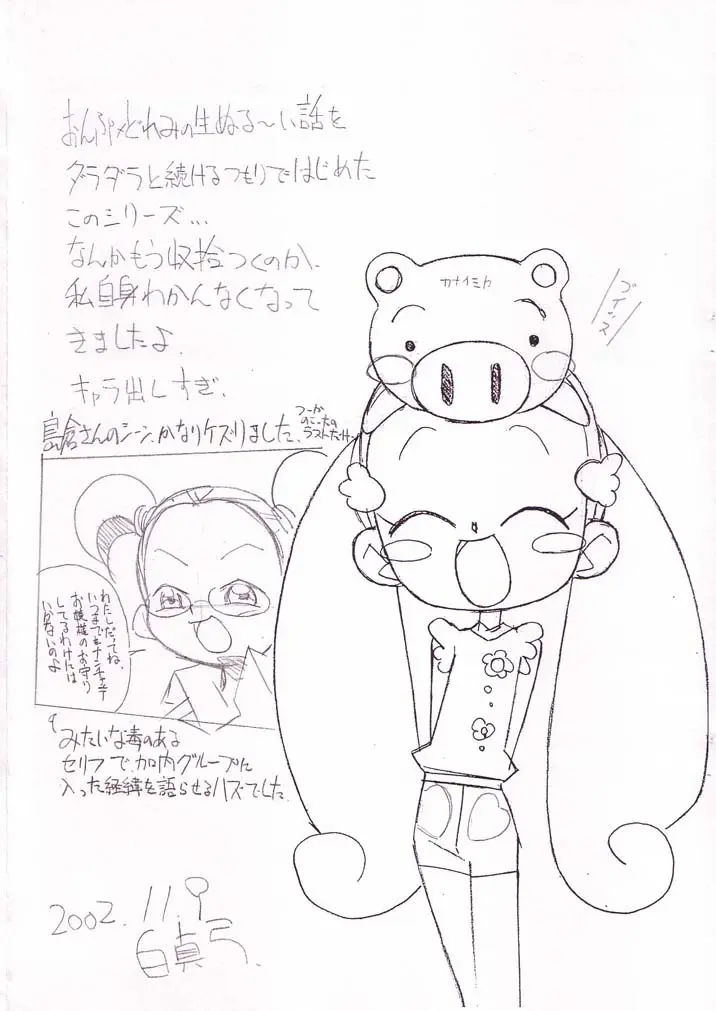 おんぷ×どれみの生ぬる～い話を
ダラダラと続けるつもりではじめた
このシリーズ…
なんかもう収拾つくのか、
私自身わかんなくなって
きましたよ。
キャラ出しすぎ。
島倉さんのシーン、かなりケズりました。
つーか
のこったの
ラストだけ。
カナイミカ
ゴイッス
わたしだってね、
いつまでもナンチャッテ
お嬢様のお守り
してるわけには
いかないのよ
みたいな毒のある
セリフで、加内グループに
入った経緯を語らせるハズでした。
2002.11.9
白真弓.